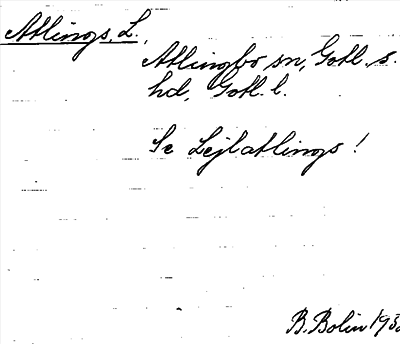 Atlings, L.,
Atlingbo sn, Gotl. s.
hd, Gotl. l.
Se Lejlatlings!
B. Bolin